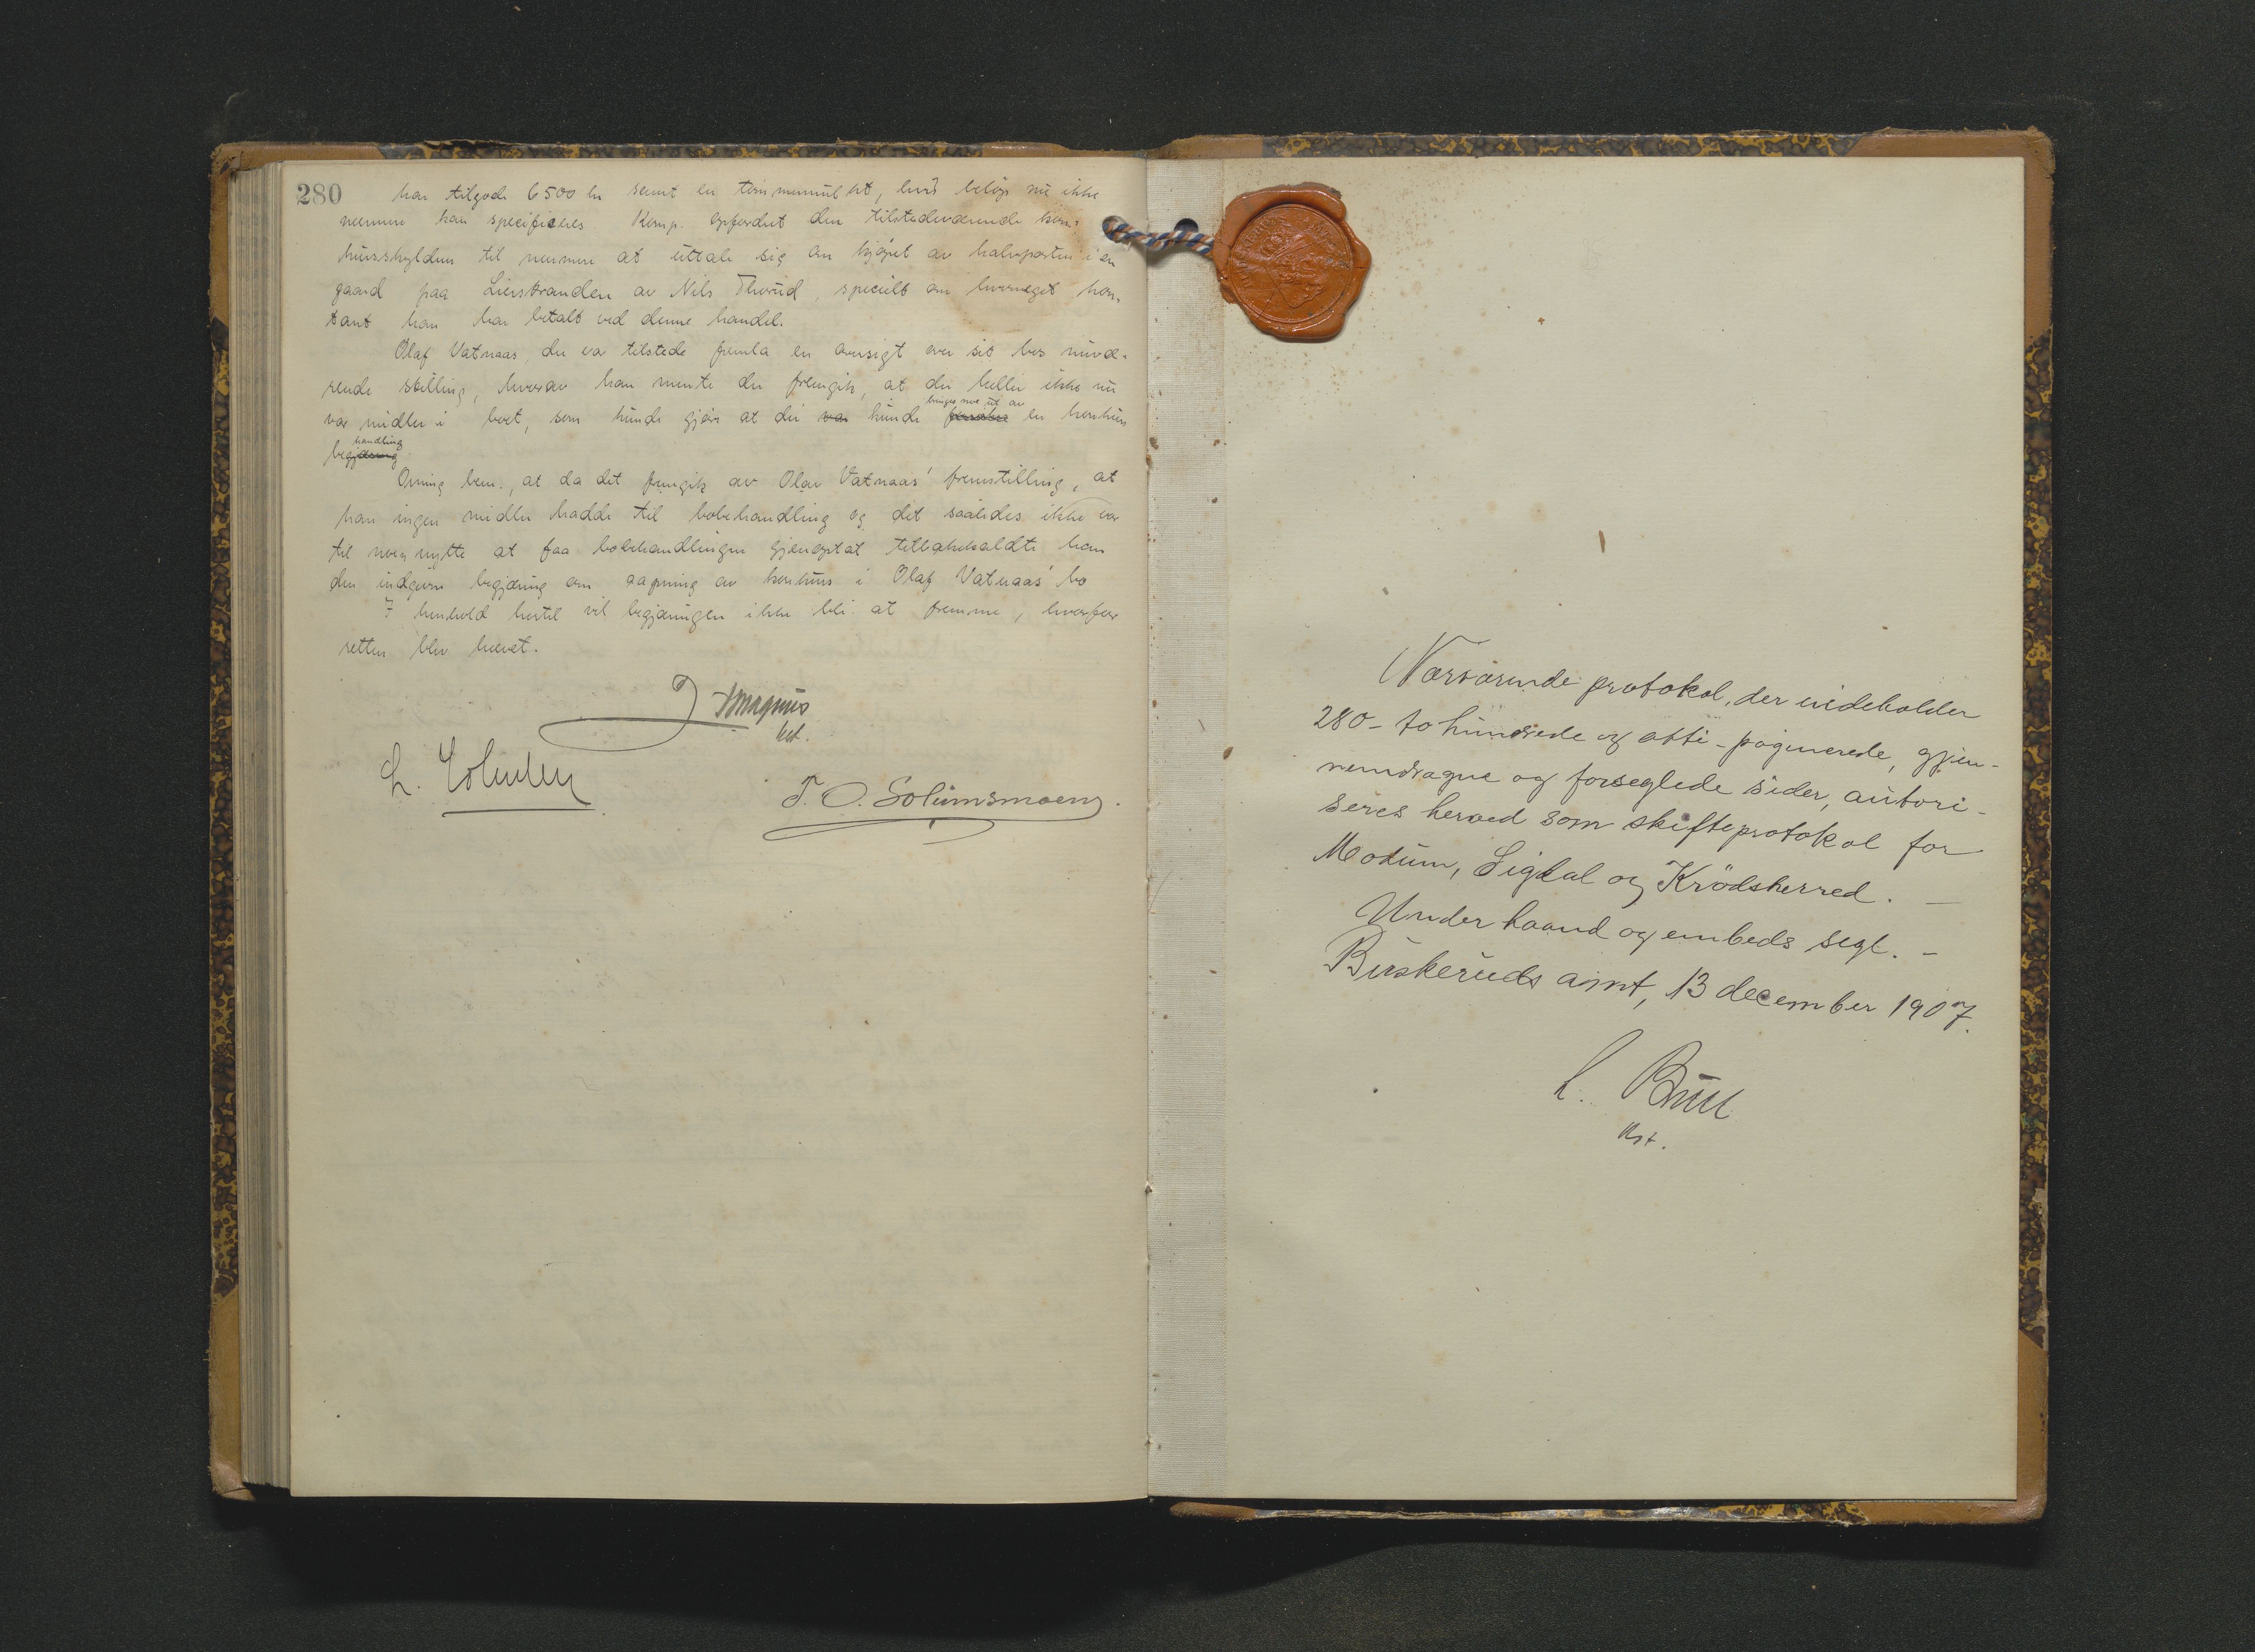 280
har tilgode 6500 kr samt en tømmerment, hvis beløp nu ikke
nærmere kan specificeres. Komp. opfordret den tilstedeværende kon-
kursskyldner til nærmere at uttale sig om kjøpet av halvparten i en
gaard paa Lierstranden av Nils Thorud, specielt om hvormeget kon-
tant han har betalt ved denne handel.
Olaf Vatnaas, der var tilstede fremla en oversigt over sit bos nuvæ-
rende stilling, hvorav han mente der fremgik, at der heller ikke nu
var midler i boet, som kunde gjøre at der var kunde bringes noe ut av en konkurs
behandling
begjæring
Orning bem., at da det fremgik av Olav Vatnaas' fremstilling, at
han ingen midler hadde til bobehandling og det saaledes ikke var
til noen nytte at faa bobehandlingen gjenoptat tilbakekaldte han
den indgivne begjæring om aapning av konkurs i Olaf Vatnaas' bo
I henhold hertil vil begjæringen ikke bli at fremme, hvorfor
retten blev hævet.
Magnus
kst.
T. O. Solumsmoen.
Nærværende protokol, der indeholder
280 - to hundrede og otti - paginerede, gjen-
nemdragne og forseglede sider, autori-
seres herved som skifteprotokol for
Modum, Sigdal og Krödsherred. -
Under haand og embeds segl. -
Buskeruds amt, 13 december 1907.
C. Bull
kst.